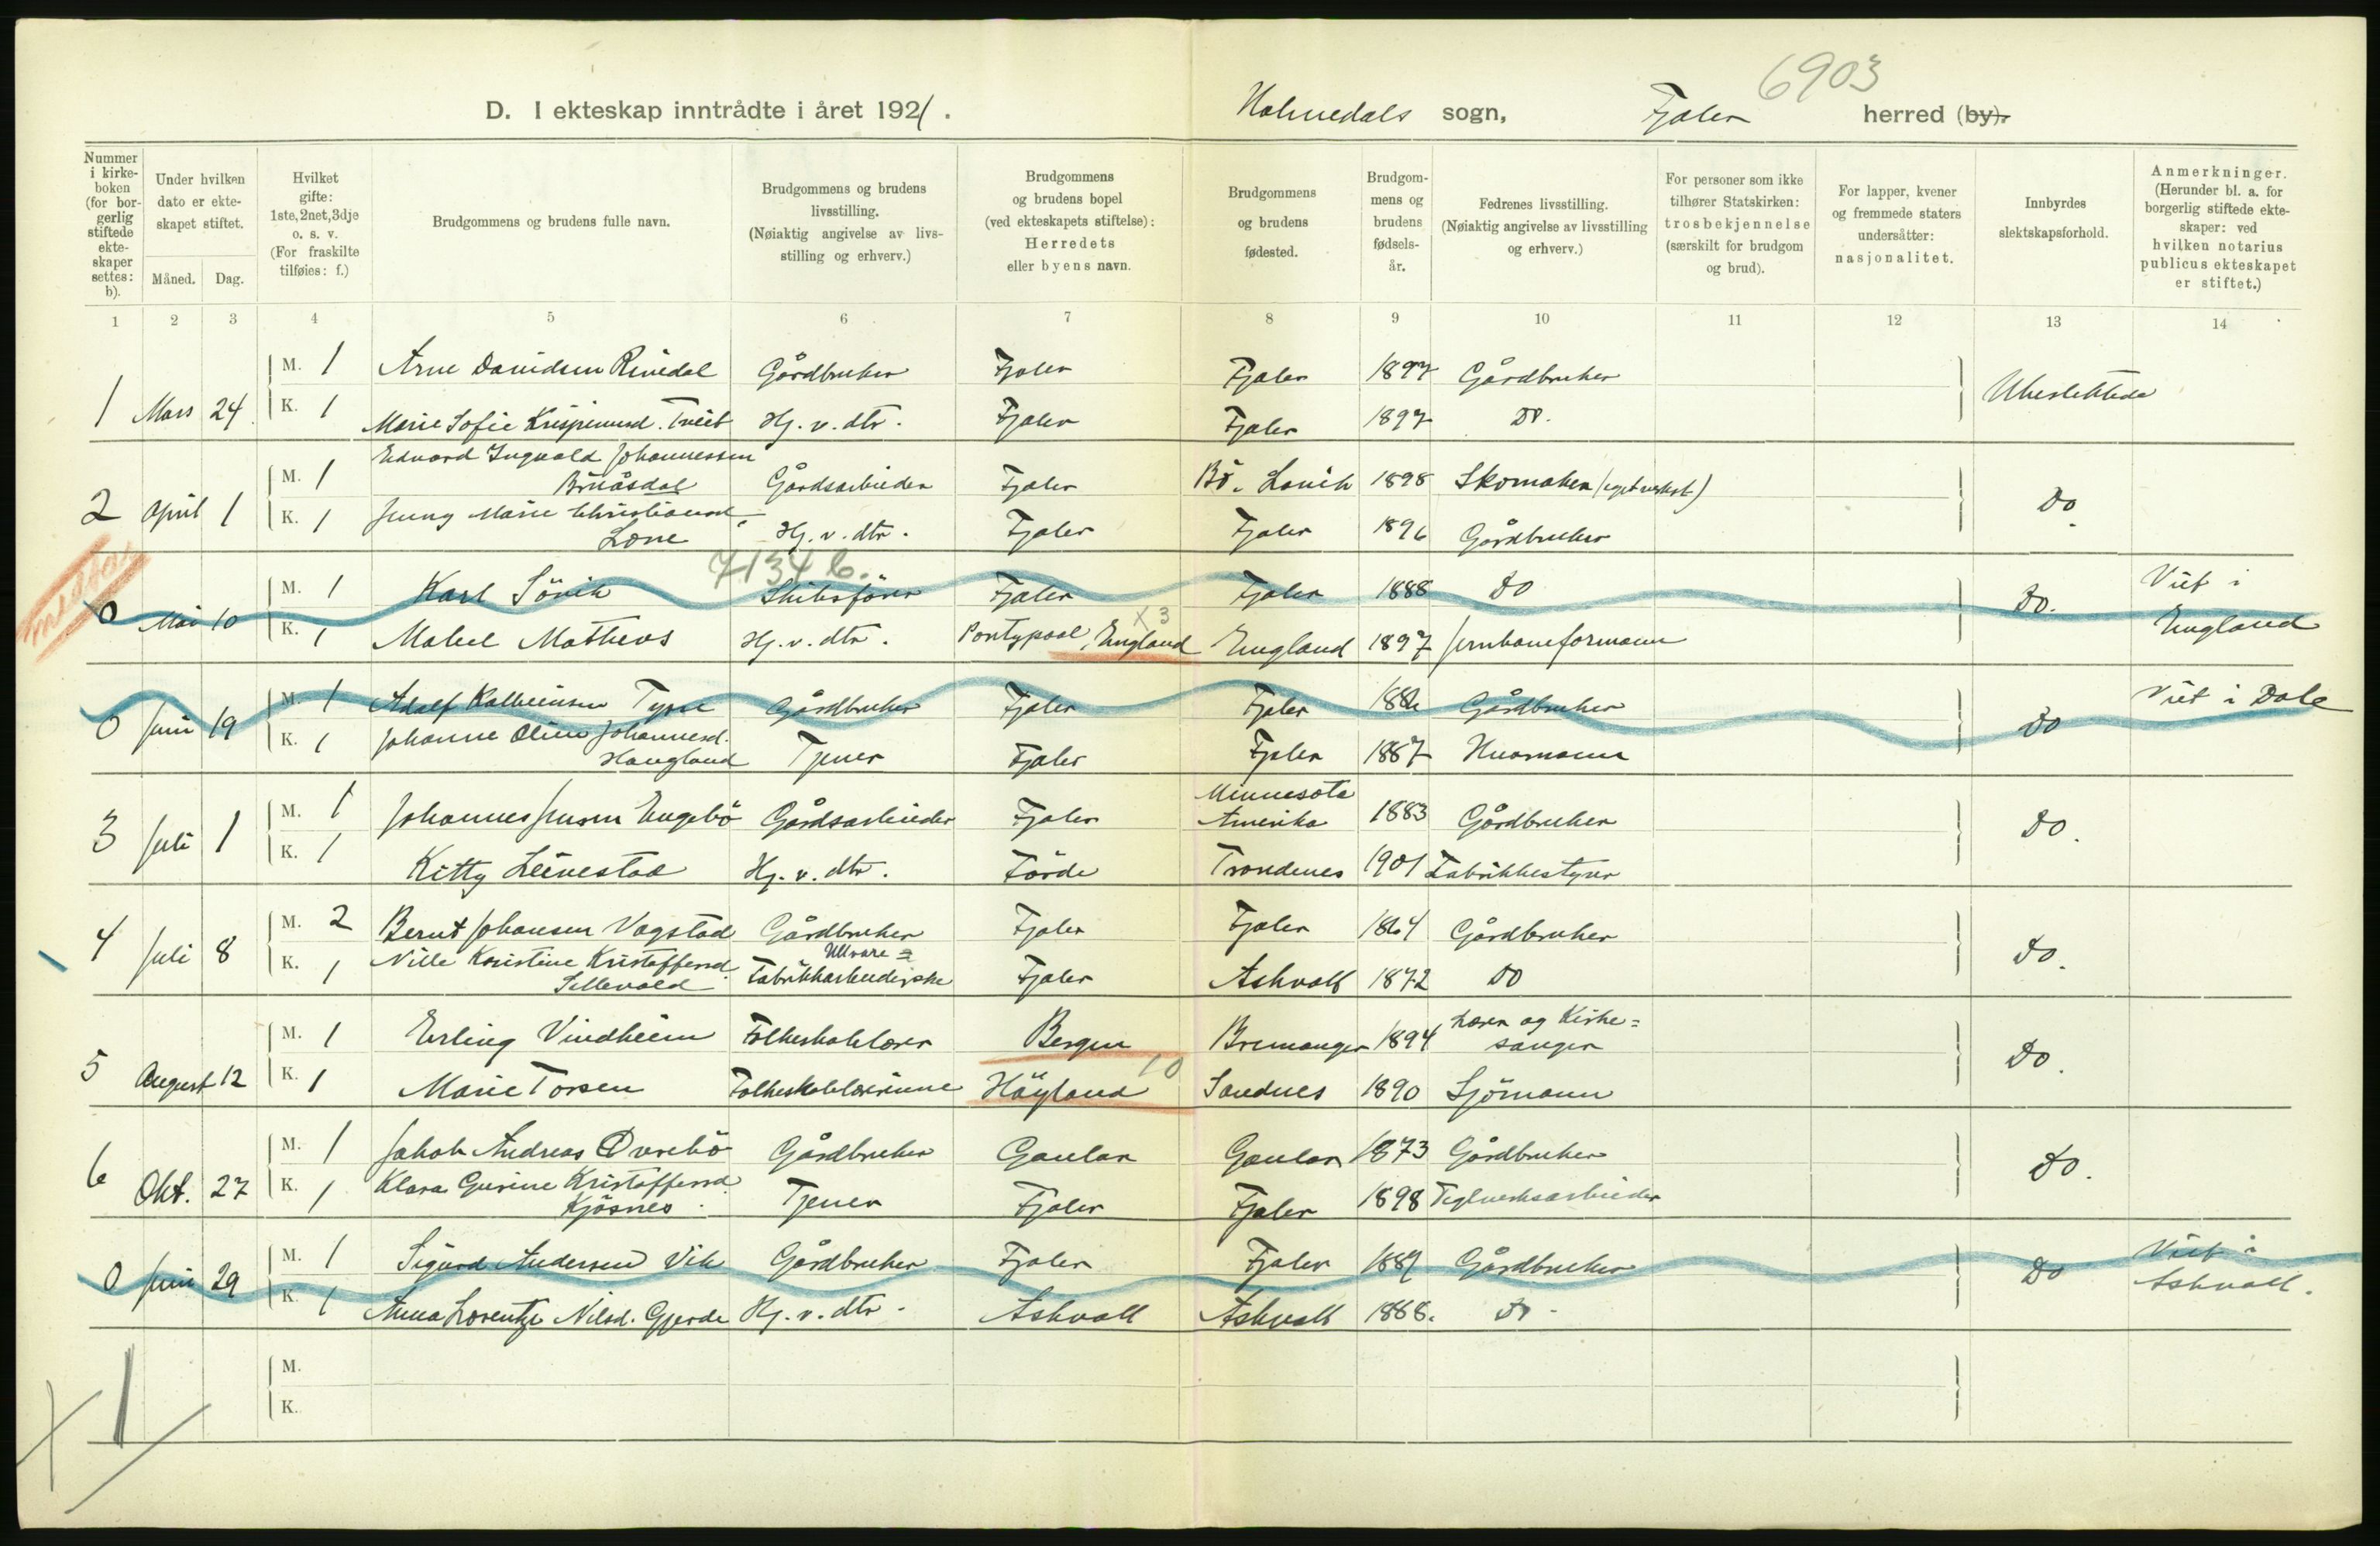 6903
D. I ekteskap inntrådte i året 1921. Holmedals sogn, Fjaler herred (by).
Nummer i kirkeboken (for borgerlig stiftede ekteskaper settes: b).
Under hvilken dato er ekteskapet stiftet.
Måned. Dag.
Hvilket gifte: 1ste, 2net, 3dje o. s. v. (For fraskilte tilføies: f.)
Brudgommens og brudens fulle navn.
Brudgommens og brudens livsstilling. (Nøiaktig angivelse av livsstilling og erhverv.)
Brudgommens og brudens bopel (ved ekteskapets stiftelse): Herredets eller byens navn.
Brudgommens og brudens fødested.
Brudgommens og brudens fødselsår.
Fedrenes livsstilling. (Nøiaktig angivelse av livsstilling og erhverv.)
For personer som ikke tilhører Statskirken: trosbekjennelse (særskilt for brudgom og brud).
For lapper, kvener og fremmede staters undersåtter: nasjonalitet.
Innbyrdes slektskapsforhold.
Anmerkninger. (Herunder bl. a. for borgerlig stiftede ekteskaper: ved hvilken notarius publicus ekteskapet er stiftet.)
1 2 3 4 5 6 7 8 9 10 11 12 13 14
M. 1 Arne Davidsen Rivedal Gårdbruker Fjaler Fjaler 1897 Gårdbruker
1 Mars 24 Ubeslektede
K. 1 Marie Sofie Krispinusd. Tveit Hj. v. dtr. Fjaler Fjaler 1897 Do.
Edvard Ingvald Johannessen
M. 1 Bruåsdal Gårdsarbeider Fjaler Bö. Lavik 1898 Skomaker (eget verkst.)
2 April 1 Do.
K. 1 Jenny Marie Christiansd.
Lone Hj. v. dtr. Fjaler Fjaler 1896 Gårdbruker
7134 b.
M. 1 Karl Sörvik Skibsförer Fjaler Fjaler 1888 Do Viet i
0 Mai 10 Do. England
K. 1 Mabel Mathews Hj. v. dtr. Pontypool, England x3 England 1897 Jernbaneformann
M. 1 Adolf Kolbeinsen Tysse Gårdbruker Fjaler Fjaler Gårdbruker Viet i Dale
0 Juni 19 Do
K. 1 Johanne Oline Johannesd.
Haugland Tjener Fjaler Fjaler 1887 Husmann
Minnesota
M. 1 Johannes Jensen Engebö Gårdsarbeider Fjaler Amerika 1883 Gårdbruker
3 Juli 1 Do.
K. 1 Kitty Leivestad Hj. v. dtr. Förde Trondenes 1901 Fabrikkbestyrer
M. 2 Bernt Johansen Vagstad Gårdbruker Fjaler Fjaler 1864 Gårdbruker
4 Juli 8 Do.
K. 1 Nille Kristine Kristoffersd. Ullvare=
Sellevold Fabrikkarbeiderske Fjaler Askvoll 1872 Do
M. 1 Erling Vindheim Folkeskolelærer Bergen Bremanger 1894 Lærer og Kirke=
sanger
5 August 12 10 Do.
K. 1 Marie Torsen Folkeskolelærerinne Höyland Sandnes 1890 Sjömann
M. 1 Jakob Andreas Övrebö Gårdbruker Gaular Gaular 1873 Gårdbruker
6 Okt. 27 Do.
K. 1 Klara Gurine Kristoffersd.
Kjösnes. Tjener Fjaler Fjaler 1898 Teglverksarbeider
M. 1 Sigurd Andersen Vik Gårdbruker Fjaler Fjaler Gårdbruker Viet i
0 Juni 29 Do Askvoll.
K. 1 Anna Lorentze Nilsd. Gjerde Hj. v. dtr. Askvoll Askvoll 1888. Do.
M.
K.